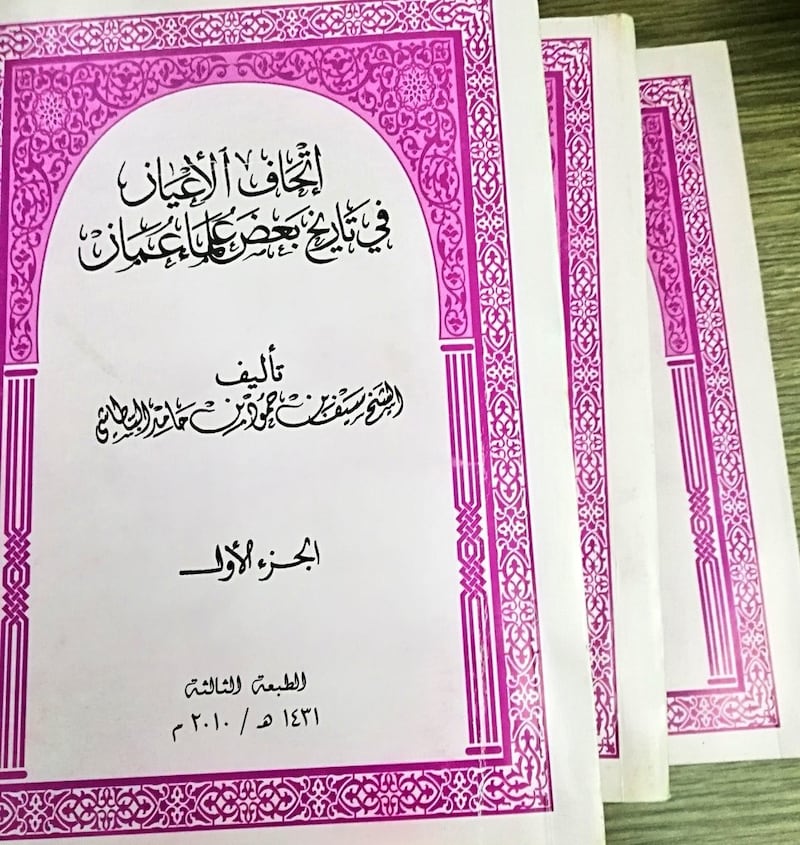 إتحاف الأعيان
في تاريخ بعض علماء عُمان
تأليف
الشيخ سيف بن حمود بن حامد البطاشي
الجزء الأول
الطبعة الثالثة
١٤٣١ هـ / ٢٠١٠ م